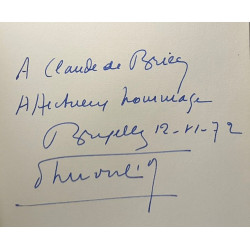 A Claude de Bricy
Affectueux hommage
Bruxelles 12-VI-72